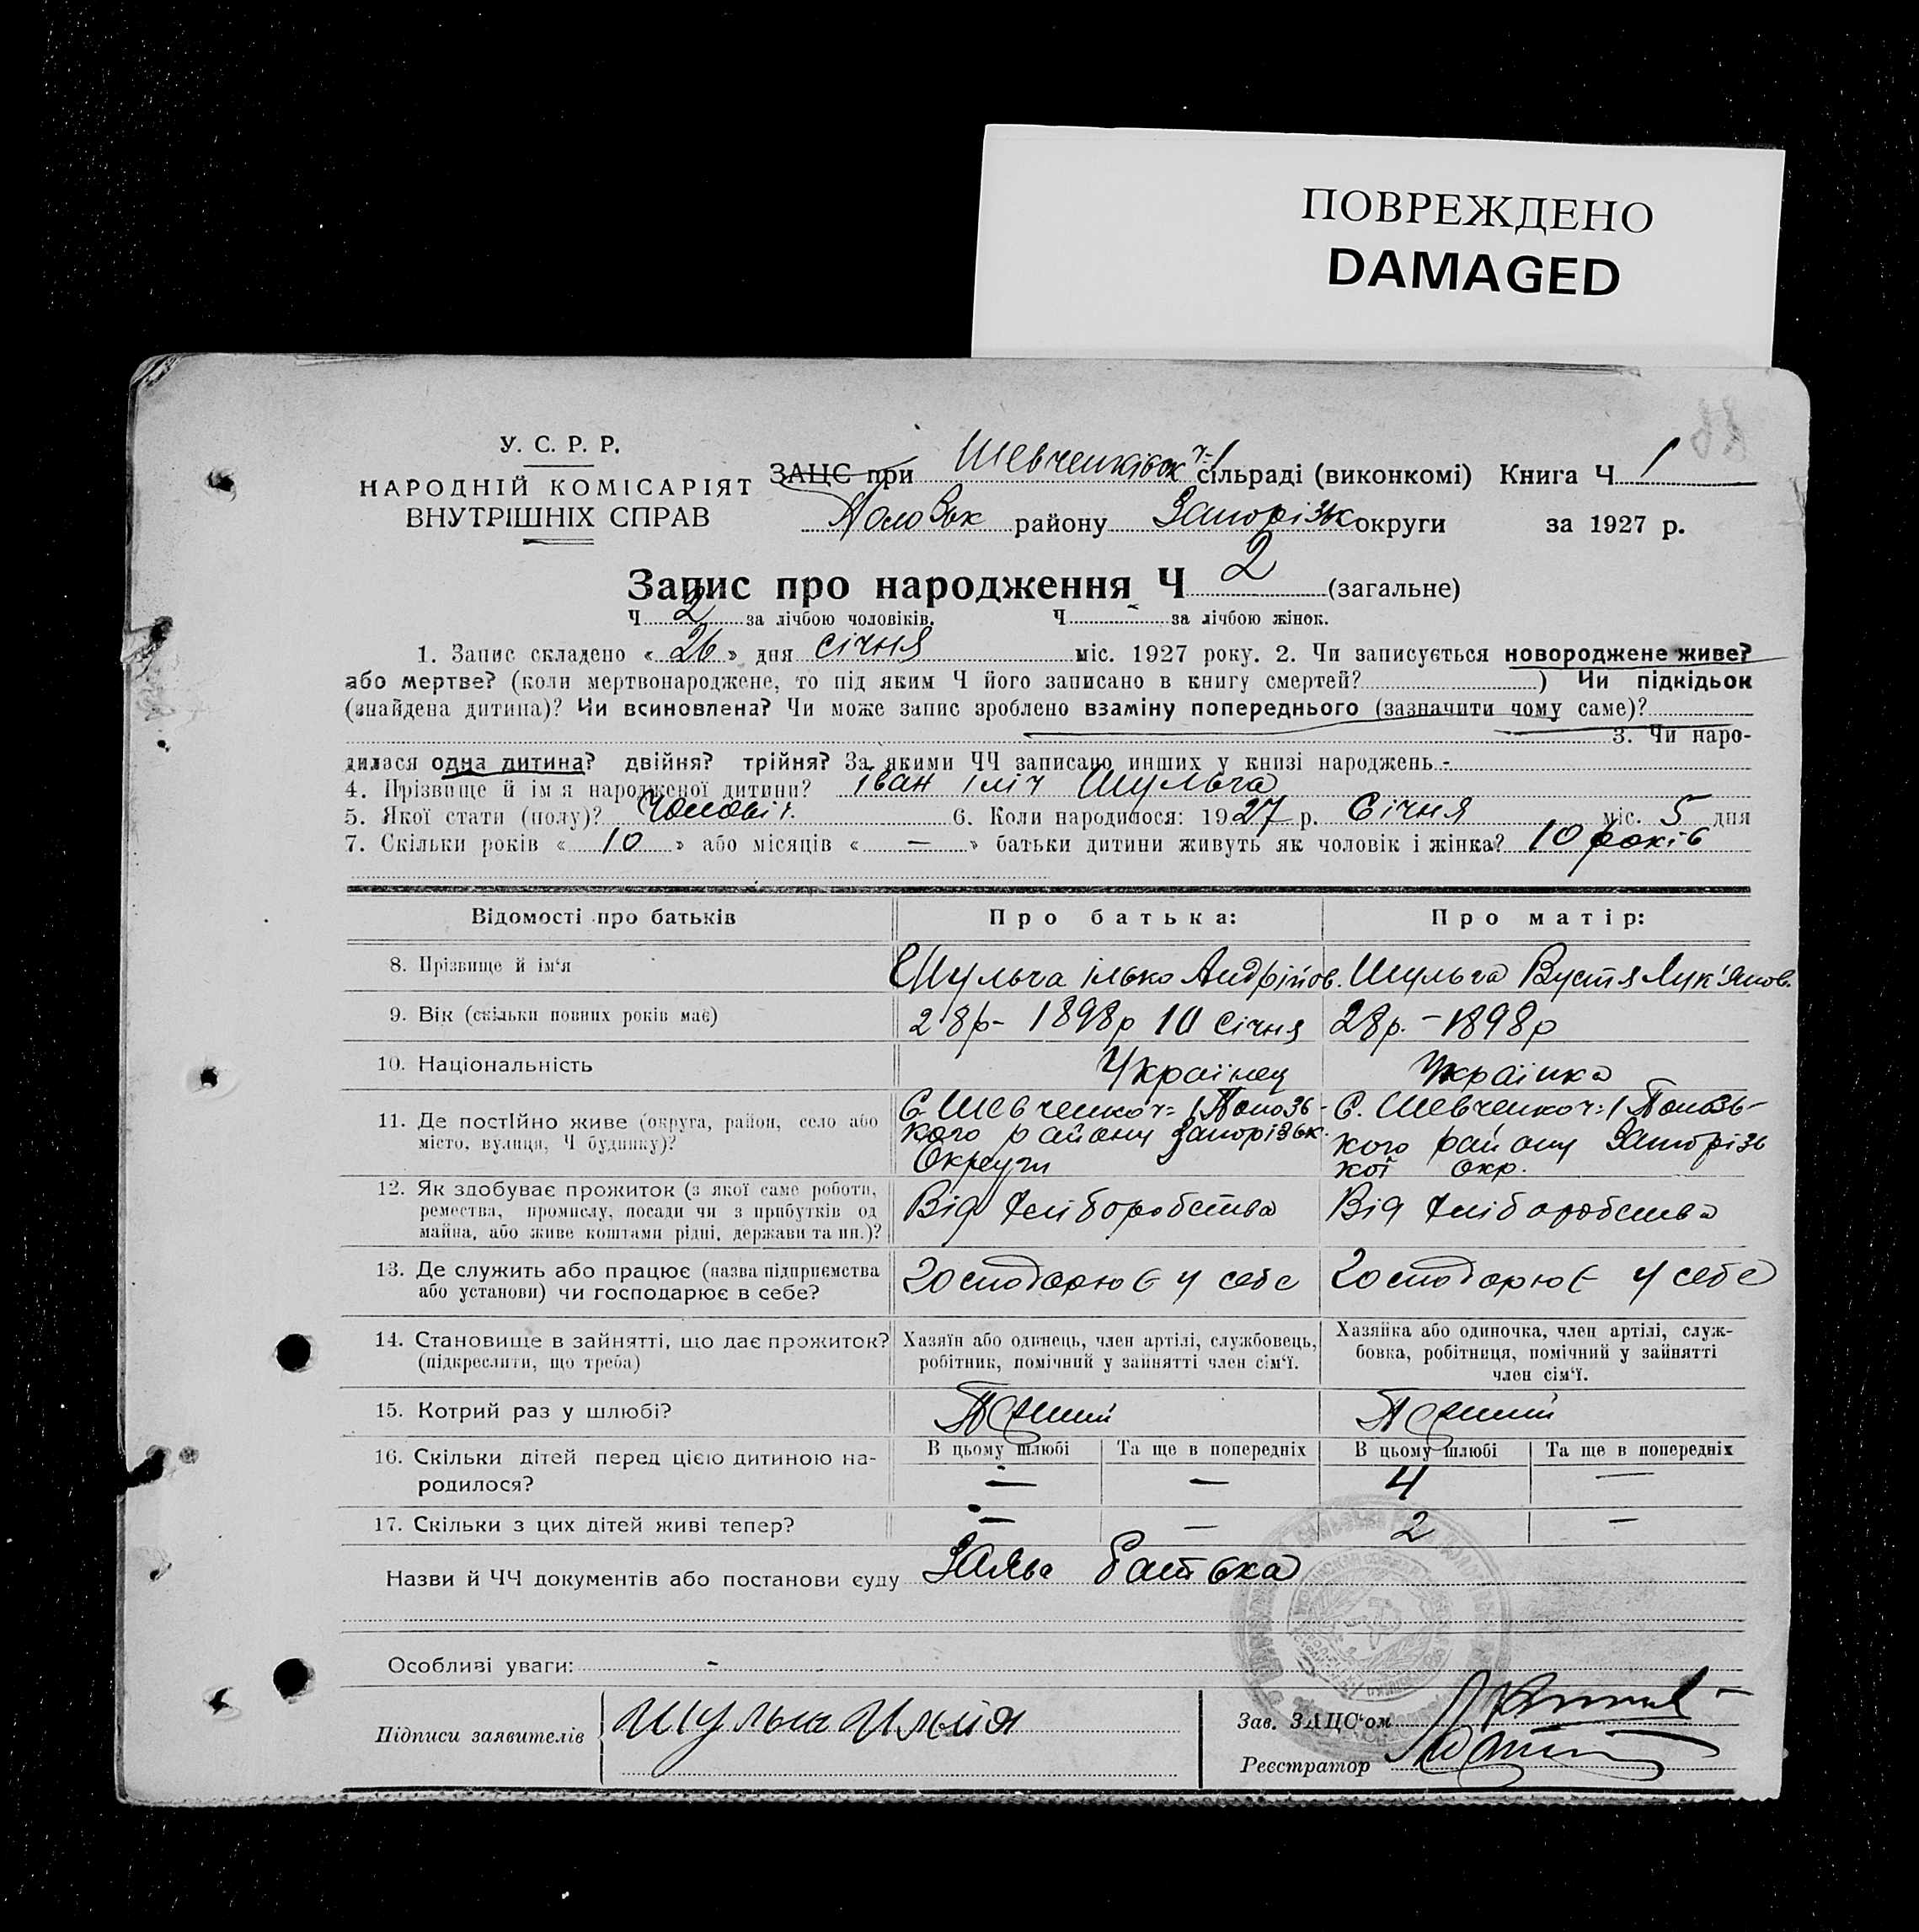 ПОВРЕЖДЕНО
DAMAGED
У. С. Р. Р.
НАРОДНІЙ КОМІСАРІЯТ
ВНУТРІШНІХ СПРАВ
ЗАЦС при Шевченківск ч-1 сільраді (виконкомі) Книга Ч 1
Пологівськ району Запорізьк округи за 1927 р.
Запис про народження Ч 2 (загальне)
Ч 2 за лічбою чоловіків. Ч за лічбою жінок.
1. Запис складено « 26 » дня січня міс. 1927 року. 2. Чи записується новороджене живе?
або мертве? (коли мертвонароджене, то під яким Ч його записано в книгу смертей? ) Чи підкідьок
(знайдена дитина)? Чи всиновлена? Чи може запис зроблено взаміну попереднього (зазначити чому саме)?
3. Чи наро-
дилася одна дитина? двійня? трійня? За якими ЧЧ записано инших у книзі народжень -
4. Прізвище й ім'я народженої дитини? Іван Ілліч Шульга
5. Якої стати (полу)? Чоловіч. 6. Коли народилося: 1927 р. Січня міс. 5 дня
7. Скільки років « 10 » або місяців « — » батьки дитини живуть як чоловік і жінка? 10 років
Відомості про батьків Про батька: Про матір:
8. Прізвище й ім'я Шульга Ілько Андрійов. Шульга Вустя Лук'янов.
9. Вік (скільки повних років має) 28р- 1898р 10 Січня 28р. - 1898р
10. Національність Українец Українка
11. Де постійно живе (округа, район, село або місто, вулиця, Ч будинку)?
С. Шевченко ч= 1 Полозь-
кого району Запорізьк.
Округи
С. Шевченко ч= 1 Полозь-
кого району Запорізь
кої окр.
12. Як здобуває прожиток (з якої саме роботи,
ремества, промислу, посади чи з прибутків од
майна, або живе коштами рідні, держави та ин.)?
Від хліборобства Від хліборобства
13. Де служить або працює (назва підприємства
або установи) чи господарює в себе?
Господарює у себе Господарює у себе
14. Становище в зайнятті, що дає прожиток?
(підкреслити, що треба)
Хазяїн або одинець, член артілі, службовець,
робітник, помічний у зайнятті член сім'ї.
Хазяйка або одиночка, член артілі, служ-
бовка, робітниця, помічний у зайнятті
член сім'ї.
15. Котрий раз у шлюбі? Перший Перший
16. Скільки дітей перед цією дитиною на-
родилося?
В цьому шлюбі Та ще в попередніх В цьому шлюбі Та ще в попередніх
— — 4 —
17. Скільки з цих дітей живі тепер? — — 2 —
Назви й ЧЧ документів або постанови суду Заява батька
Особливі уваги: -
Підписи заявителів Шульга Илия
Зав. ЗАЦС'ом
Реєстратор